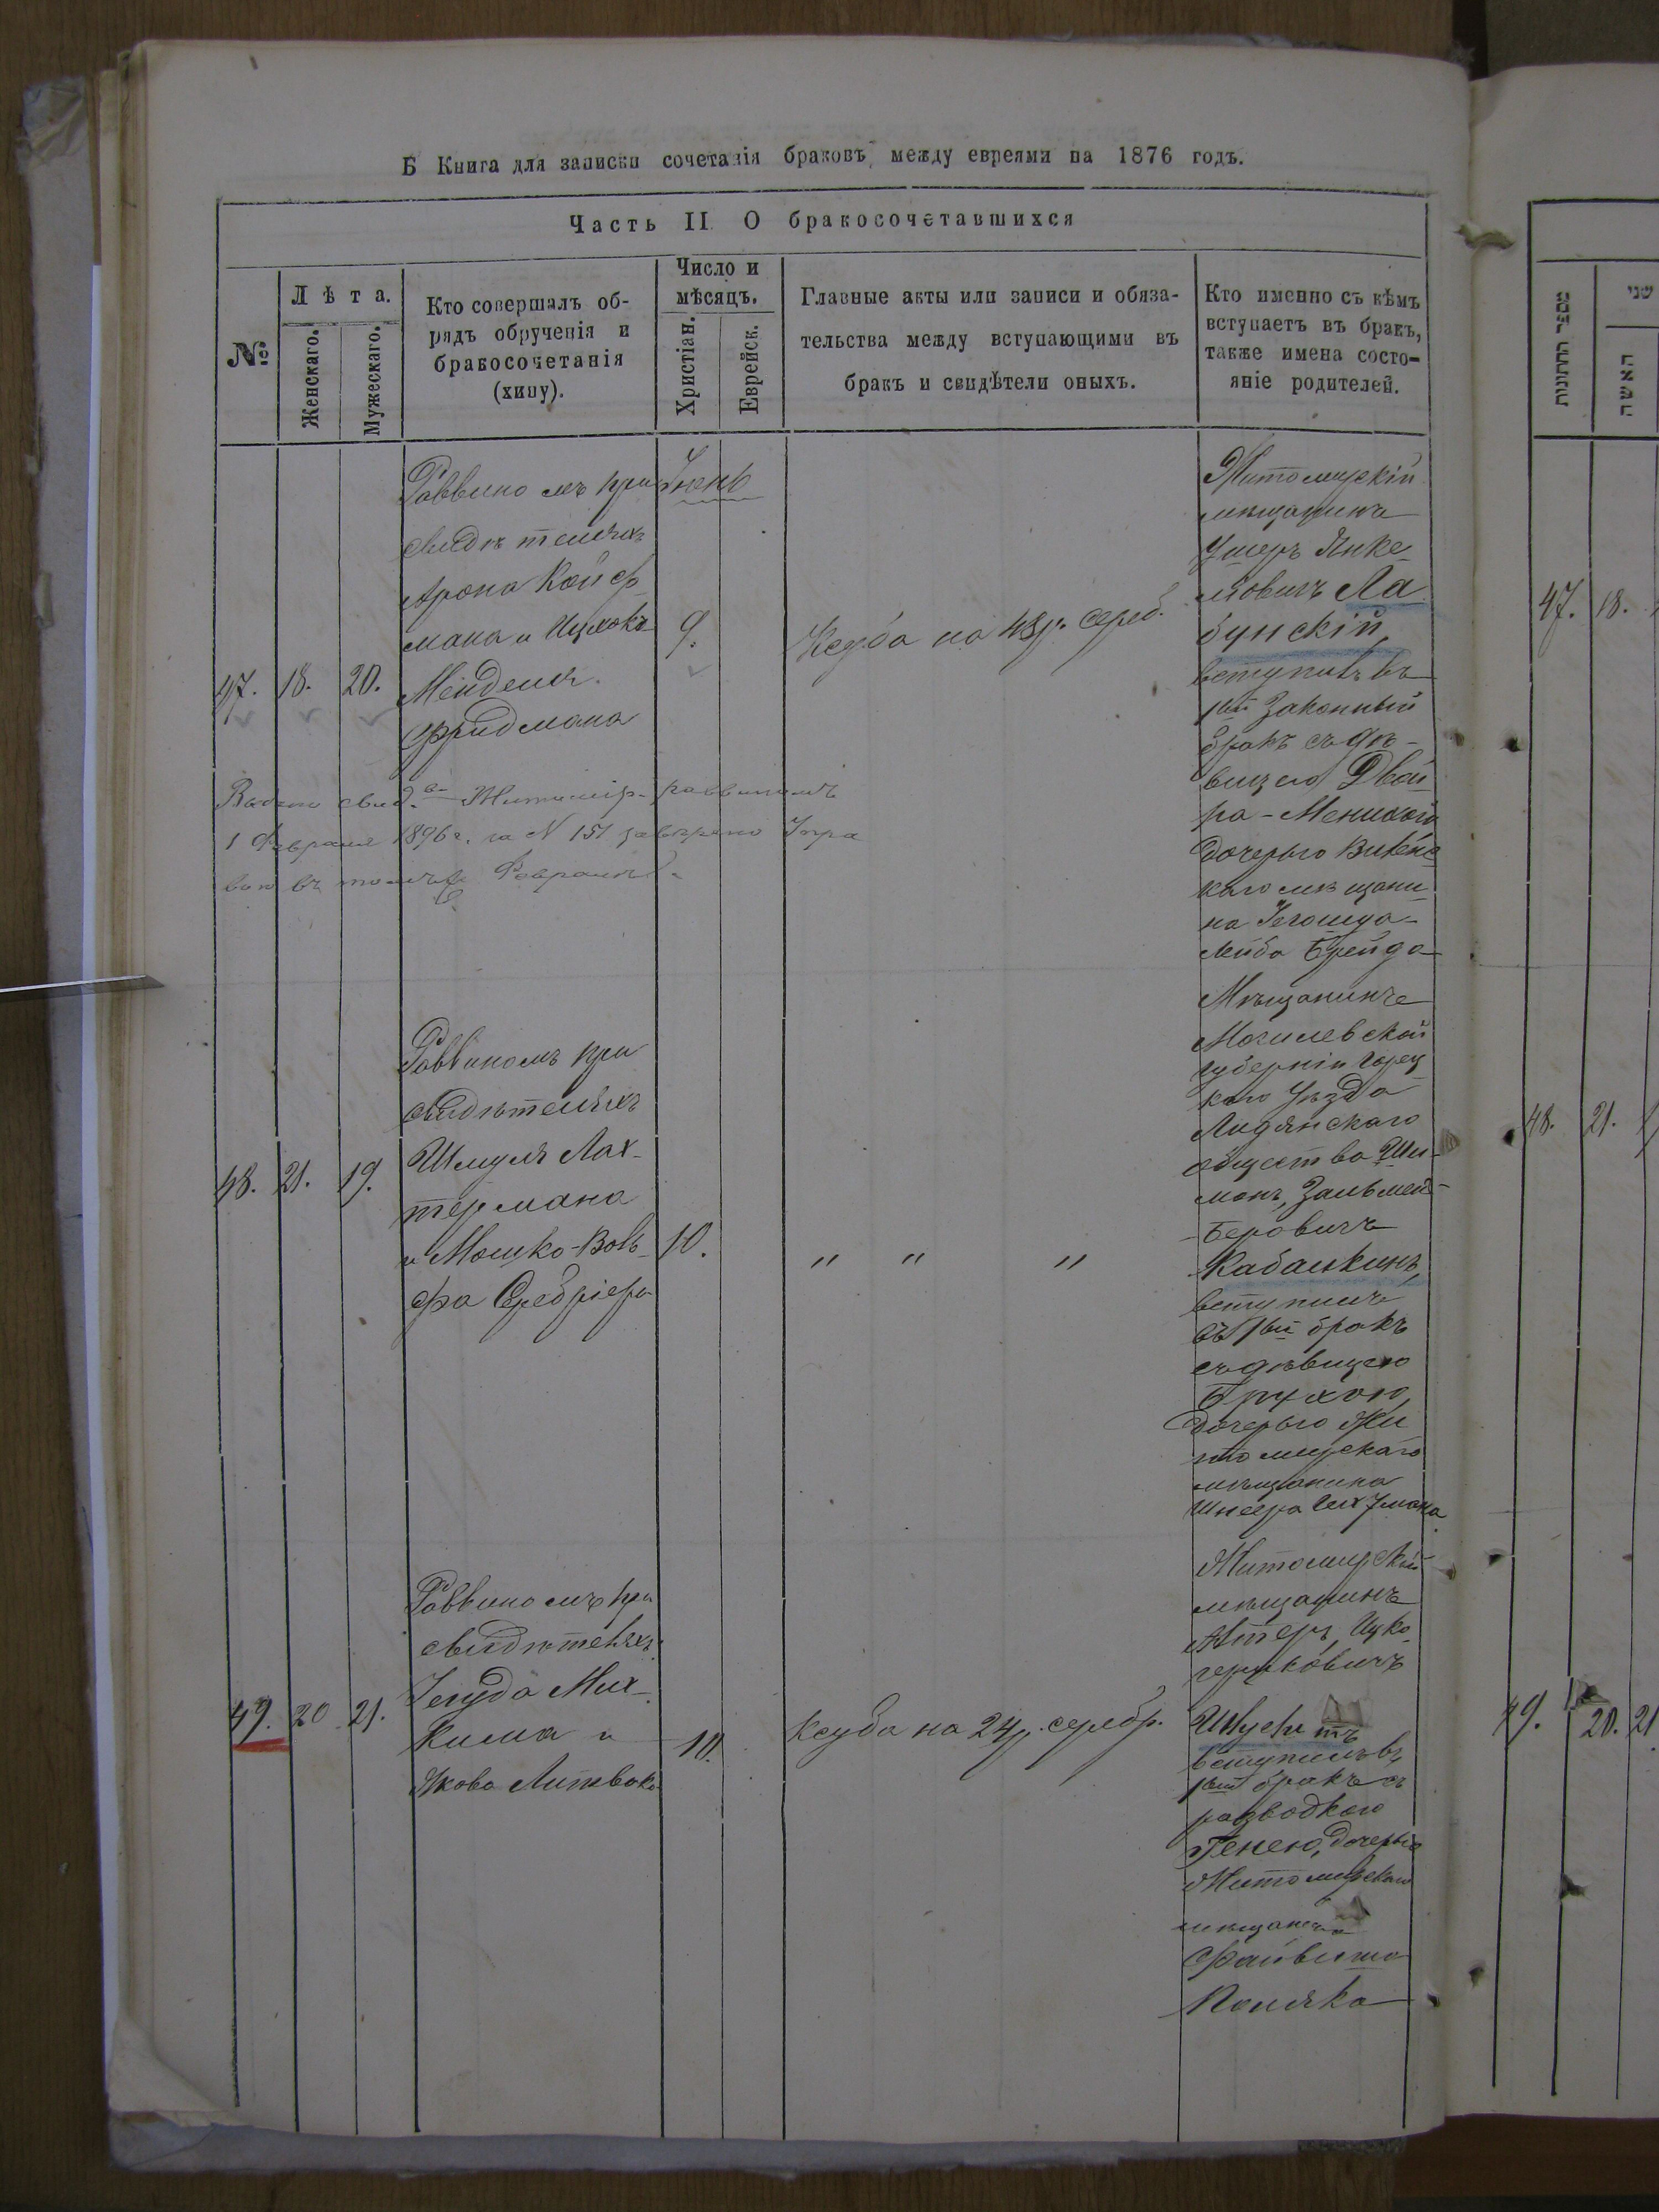 Б Книга для записки сочетанія браковъ между евреями на 1876 годъ.
Часть II О бракосочетавшихся
№
Лѣта.
Женскаго.
Мужескаго.
Кто совершалъ об-
рядъ обрученія и
бракосочетанія
(хипу).
Число и
мѣсяцъ.
Христіан.
Еврейск.
Главные акты или записи и обяза-
тельства между вступающими въ
бракъ и свидѣтели оныхъ.
Кто именно съ кѣмъ
вступаетъ въ бракъ,
также имена состо-
яніе родителей.
47.
18.
20.
Раввиномъ при
свидѣтеляхъ
Арона Койф
мана и Ицхокъ
Мендель
Фридмана
Іюнь
9.
Ксуба на 48 р. сереб.
Житомирскій
мѣщанинъ
Ушеръ Янке
левичъ Ла
бунскій,
вступилъ въ
1ый Законный
бракъ съ дѣ-
вицею Двой
ра-
дочерью
каго мѣщани
на Іегошуа-
Лейба Брейда
1 Февраля 1896 г. за N 151
48.
21.
19.
Раввиномъ при
свидѣтеляхъ
Шмуля Лах-
термана
и Мошко-Воль
фа
10.
" " "
Мѣщанинъ
Могилевской
губерніи Горец
каго Уѣзда
Лядянскаго
общества Ши-
монъ, Залмен-
Беровичъ
Кабалкинъ,
вступилъ
въ 1ый бракъ
съ дѣвицею
Брухою,
дочерью Жи
томирскаго
мѣщанина
Шнеера
49.
20
21.
Раввиномъ при
свидѣтеляхъ
Іегуда Мих-
Кима и
Якова Литвака
10.
Ксуба на 24 р. серебр.
Житомирскій
мѣщанинъ
Алтеръ, Ицко
вступилъ въ
1ый бракъ съ
разводкою
Генею, дочерью
Житомирскаго
мѣщанина
Файвиша
Поляка
מספר החתונות
שני
האשה
47.
18.
48.
21.
49.
20.
21